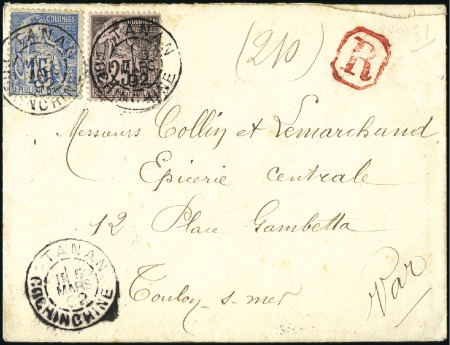 COLONIES
15
25
TANAN
MARS
92
COCHINCHINE
(210)
R
Messieurs Collin et Lemarchand
Epicerie Centrale
12 Place Gambetta
TANAN
MARS
92
COCHINCHINE
Toulon-s-mer
Var